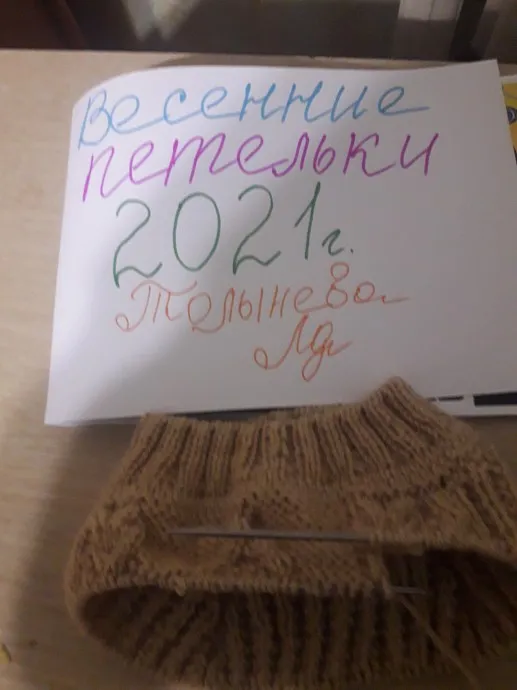 Весенние
петельки
2021г.
Толынева
Лд